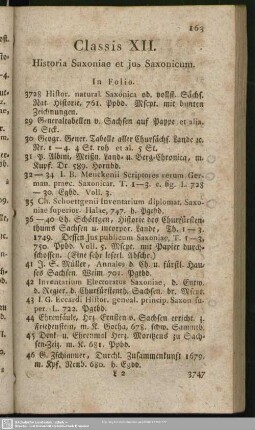 163
Classis XII.
Historia Saxoniae et jus Saxonicum.
In Folio.
3728 Histor. natural. Saxonica od. vollst. Sächs.
Nat. Historie. 761. Ppbd. Mscpt. mit bunten
Zeichnungen.
29 Generaltabellen v. Sachsen auf Pappe et alia,
6 Stck.
30 Geogr. Gener. Tabelle aller Chursächs. Lande ꝛc.
Nr. 1 — 4. 4 St. roh et al. 4 St.
31 P. Albini, Meisn. Land- u. Berg-Chronica, m.
Kupf. Dr. 589. Hornbd.
32 — 34 I. B. Menckenii Scriptores rerum Ger-
man. praec. Saxonicar. T. 1—3. c. fig. L. 728
— 30. Eghd. Voll. 3.
35 Ch. Schoettgenii Inventarium diplomat. Saxo-
niae superior. Halae, 747. h. Pgthd.
36 — 40 Ch. Schöttgen, Historie des Churfürsten-
thums Sachsen u. incorpor. Lande, Th. 1 — 3.
1749. Dessen Jus publicum Saxoniae, T. 1—3.
750. Ppbd. Voll. 5. Mscpt. mit Papier durch-
schossen. (Eine sehr leserl. Abschr.)
41 J. S. Müller, Annales d. Ch. u. fürstl. Hau-
ses Sachsen. Weim. 701. Pgtbd.
42 Inventarium Electoratus Saxoniae, d. Entw.
d. Regier. d. Churfürstenth. Sachsen. br. Mscpt.
43 I. G. Eccardi Histor. geneal. princip. Saxon. su-
per. L. 722. Pgtbd.
44 Ehrensäule, Hrz. Ernsten v. Sachsen erricht. z.
Friedenstein, m. K. Gotha, 678. schw. Sammtb.
45 Denk- u. Ehrenmal Herz. Moritzens zu Sach-
sen-Zeiz. m. K. 681. Ppbd.
46 G. Tzschimmer, Durchl. Zusammenkunft 1679.
m. Kpf. Nrnd. 680. b. Egbd.
L 2
3747